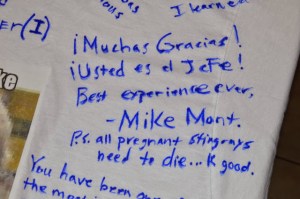 I learned
er(I)
¡Muchas Gracias!
¡Usted es el Jefe!
Best experience ever,
- Mike Mont.
P.s. all pregnant stingrays
need to die... K good.
You have been
the